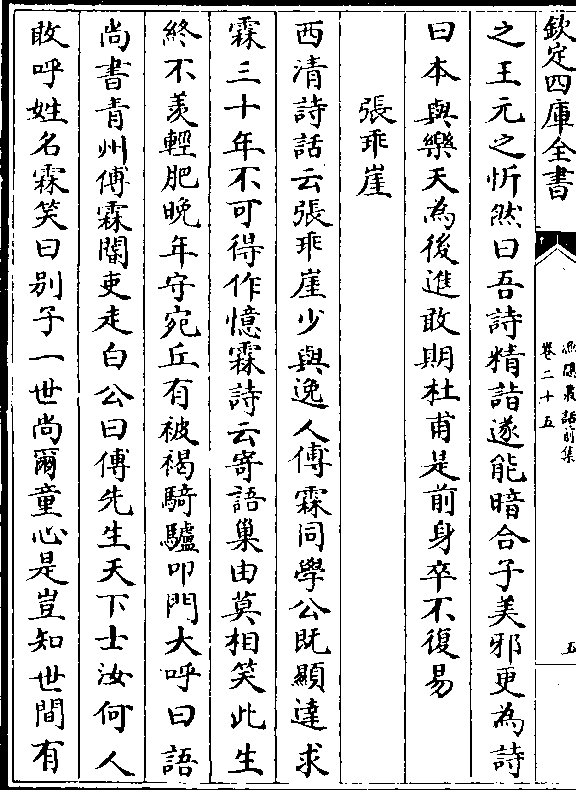 欽定四庫全書
漁隱叢話前集
卷二十五
五
之王元之忻然曰吾詩精詣遂能暗合子美邪更為詩
曰本與樂天為後進敢期杜甫是前身卒不復易
張乖崖
西清詩話云張乖崖少與逸人傅霖同學公既顯達求
霖三十年不可得作憶霖詩云寄語巢由莫相笑此生
終不羨輕肥晚年守宛丘有被褐騎驢叩門大呼曰語
尚書青州傅霖閽吏走白公曰傅先生天下士汝何人
敢呼姓名霖笑曰别子一世尚爾童心是豈知世間有